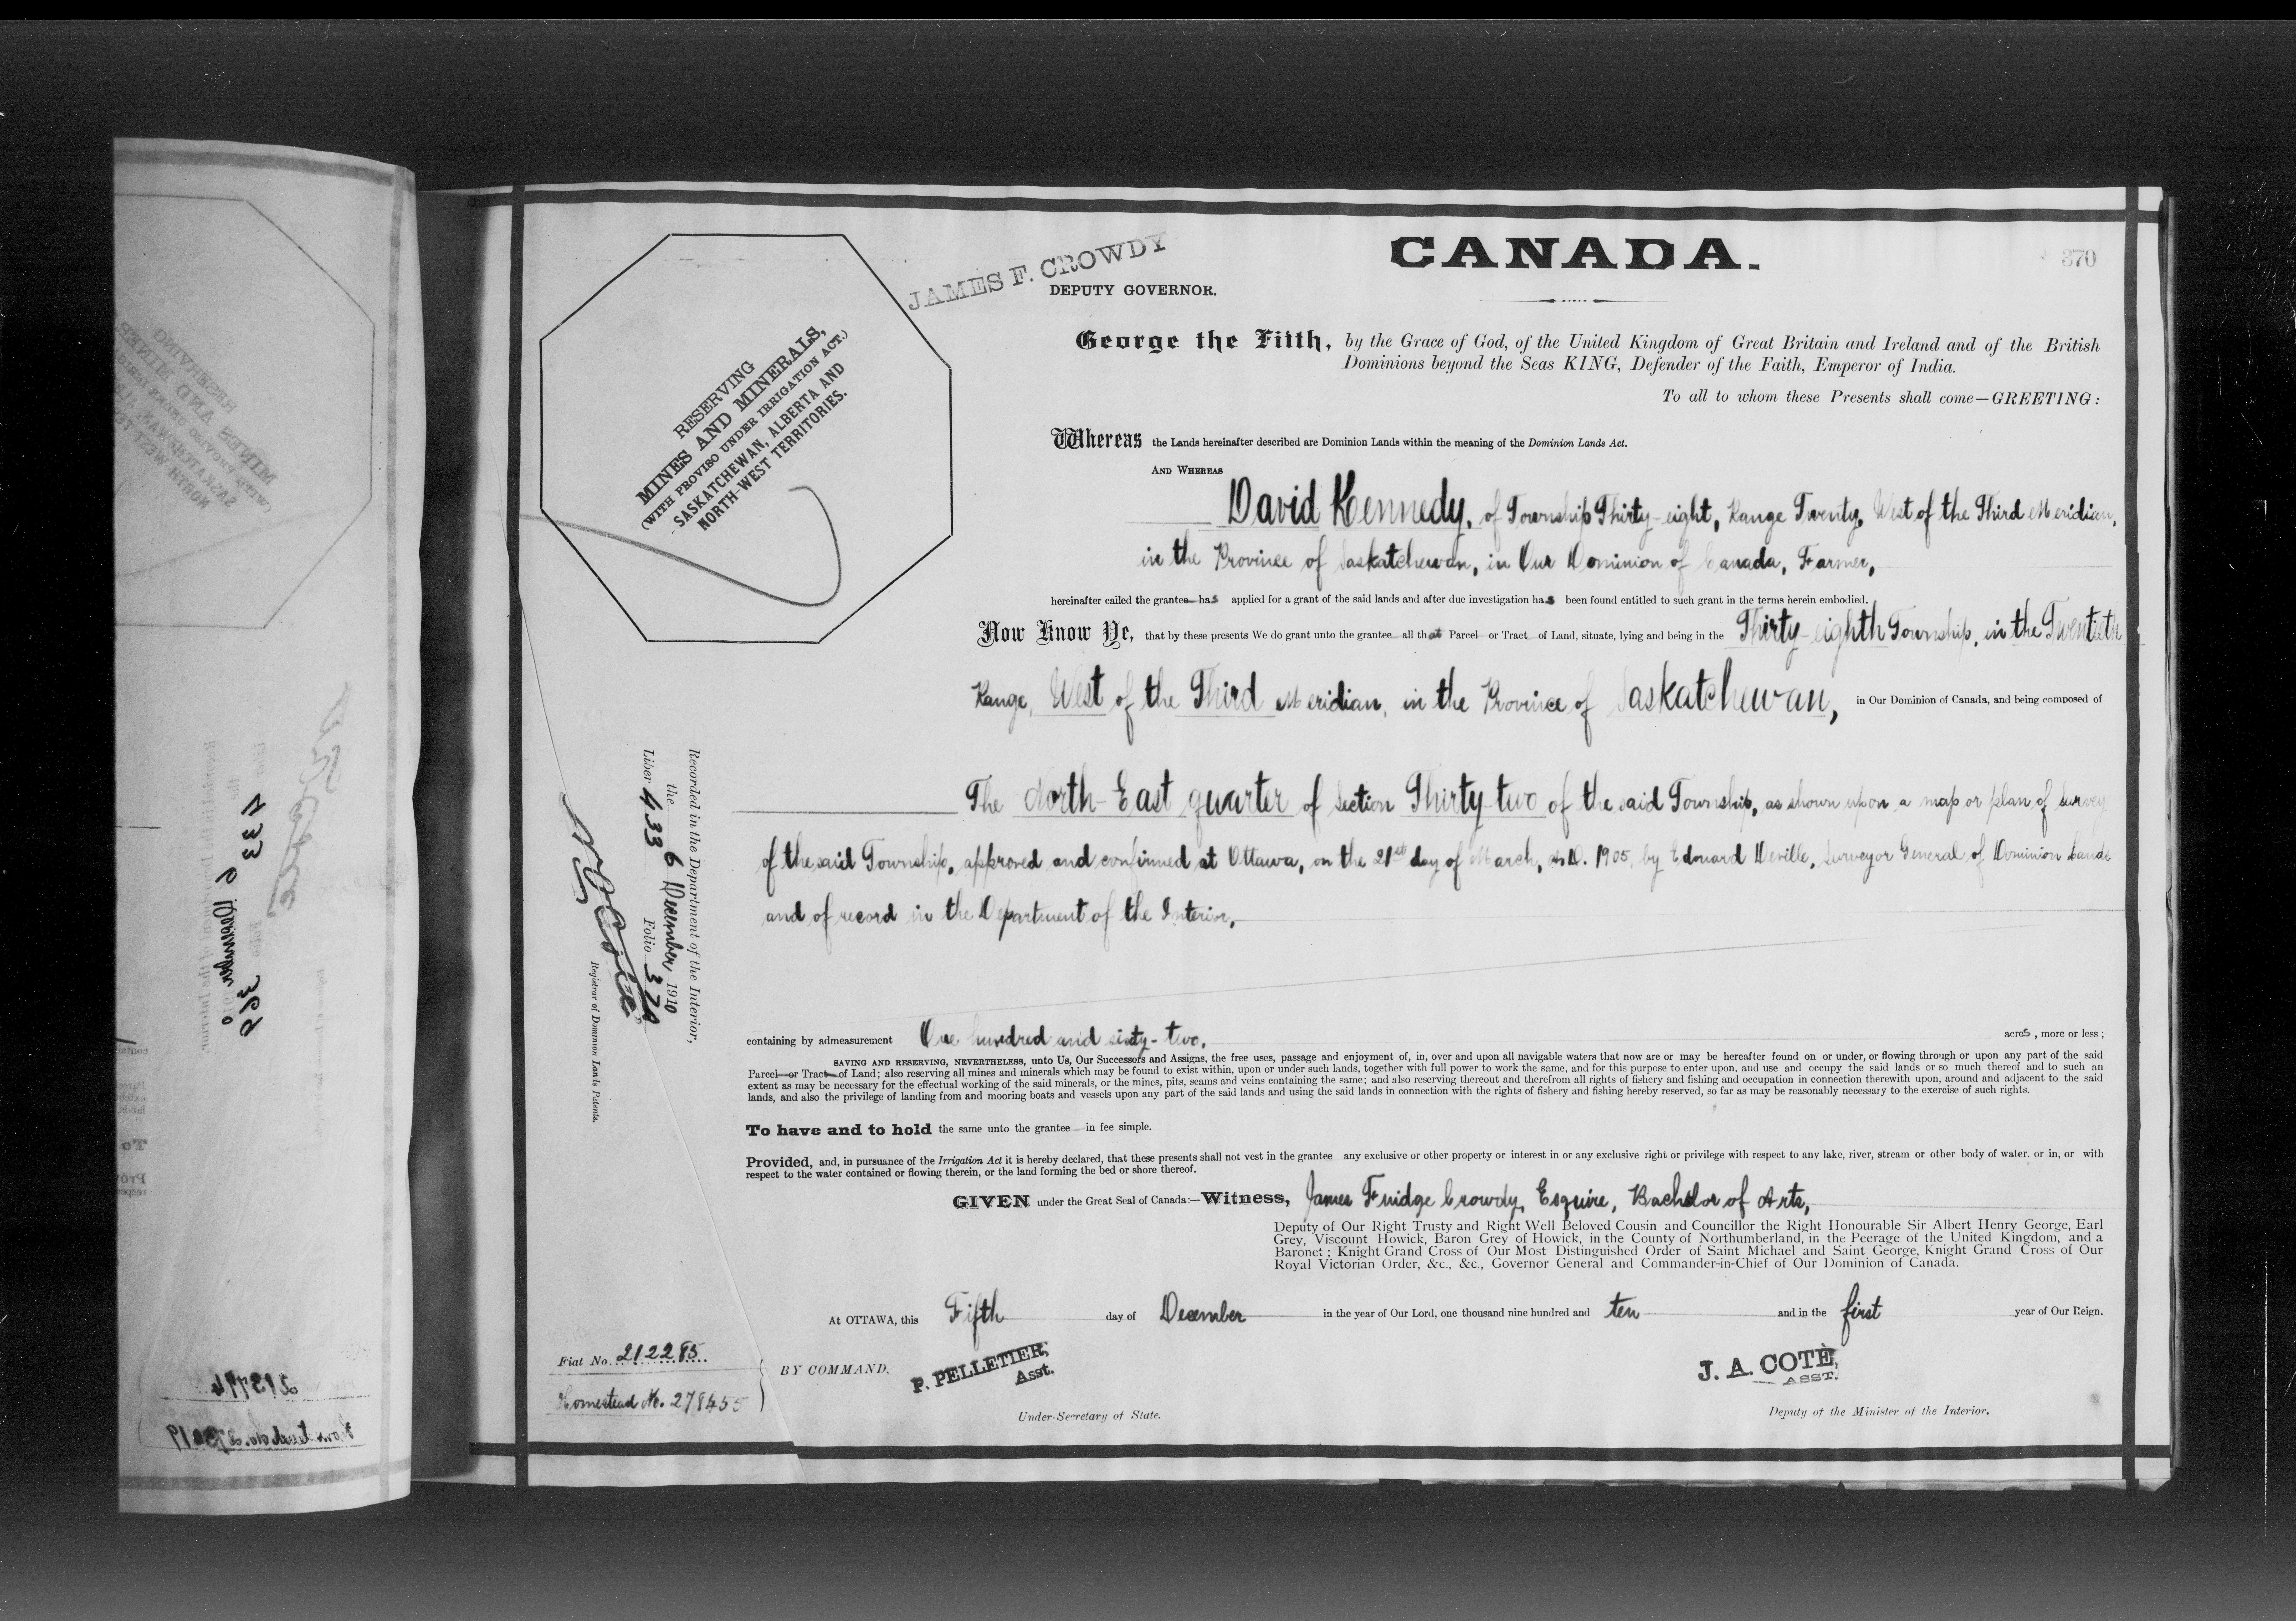 CANADA.
370
JAMES F. CROWDY
DEPUTY GOVERNOR.
RESERVING
MINES AND MINERALS,
(WITH PROVISO UNDER IRRIGATION ACT.)
SASKATCHEWAN, ALBERTA AND
NORTH-WEST TERRITORIES.
George the Fifth, by the Grace of God, of the United Kingdom of Great Britain and Ireland and of the British
Dominions beyond the Seas KING, Defender of the Faith, Emperor of India.
To all to whom these Presents shall come—GREETING:
Whereas the Lands hereinafter described are Dominion Lands within the meaning of the Dominion Lands Act.
AND WHEREAS
David Kennedy, of Township Thirty-eight, Range Twenty, West of the Third Meridian,
in the Province of Saskatchewan, in Our Dominion of Canada, Farmer,
hereinafter called the grantee has applied for a grant of the said lands and after due investigation has been found entitled to such grant in the terms herein embodied.
Now Know Ye, that by these presents We do grant unto the grantee all that Parcel or Tract of Land, situate, lying and being in the Thirty-eighth Township, in the Twentieth
Range, West of the Third Meridian, in the Province of Saskatchewan, in Our Dominion of Canada, and being composed of
The North-East quarter of Section Thirty-two of the said Township, as shown upon a map or plan of survey
of the said Township, approved and confirmed at Ottawa, on the 21st day of March, A.D. 1905, by Edouard Deville, Surveyor General of Dominion Lands
and of record in the Department of the Interior,
containing by admeasurement One hundred and sixty-two, acres, more or less;
SAVING AND RESERVING, NEVERTHELESS, unto Us, Our Successors and Assigns, the free uses, passage and enjoyment of, in, over and upon all navigable waters that now are or may be hereafter found on or under, or flowing through or upon any part of the said
Parcel or Tract of Land; also reserving all mines and minerals which may be found to exist within, upon or under such lands, together with full power to work the same, and for this purpose to enter upon, and use and occupy the said lands or so much thereof and to such an
extent as may be necessary for the effectual working of the said minerals, or the mines, pits, seams and veins containing the same; and also reserving thereout and therefrom all rights of fishery and fishing and occupation in connection therewith upon, around and adjacent to the said
lands, and also the privilege of landing from and mooring boats and vessels upon any part of the said lands and using the said lands in connection with the rights of fishery and fishing hereby reserved, so far as may be reasonably necessary to the exercise of such rights.
To have and to hold the same unto the grantee in fee simple.
Provided, and, in pursuance of the Irrigation Act it is hereby declared, that these presents shall not vest in the grantee any exclusive or other property or interest in or any exclusive right or privilege with respect to any lake, river, stream or other body of water, or in, or with
respect to the water contained or flowing therein, or the land forming the bed or shore thereof.
GIVEN under the Great Seal of Canada:—Witness, James Fuidge Crowdy, Esquire, Bachelor of Arts,
Deputy of Our Right Trusty and Right Well Beloved Cousin and Councillor the Right Honourable Sir Albert Henry George, Earl
Grey, Viscount Howick, Baron Grey of Howick, in the County of Northumberland, in the Peerage of the United Kingdom, and a
Baronet; Knight Grand Cross of Our Most Distinguished Order of Saint Michael and Saint George, Knight Grand Cross of Our
Royal Victorian Order, &c., &c., Governor General and Commander-in-Chief of Our Dominion of Canada.
At OTTAWA, this Fifth day of December in the year of Our Lord, one thousand nine hundred and ten and in the first year of Our Reign.
BY COMMAND,
P. PELLETIER,
Asst.
Under-Secretary of State.
J. A. COTÉ,
ASST.
Deputy of the Minister of the Interior.
Recorded in the Department of the Interior,
the 6 December, 1910
Liber 433 Folio 370
Registrar of Dominion Lands Patents.
Fiat No. 212285
Homestead No. 278455